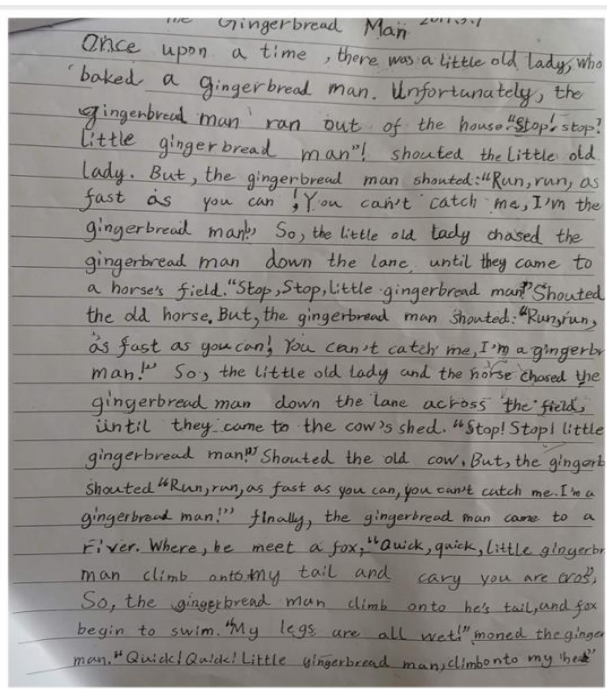 The Gingerbread Man 2011.5.7
Once upon a time , there was a little old lady, who
baked a gingerbread man. Unfortunately, the
gingenbread man ran out of the house. "Stop! stop!
little gingerbread man"! shouted the little old
lady. But, the gingerbread man shouted: "Run, run, as
fast as you can ! You can't catch me, I'm the
gingerbread man!" So, the little old lady chased the
gingerbread man down the lane, until they came to
a horse's field. "Stop, Stop, little gingerbread man!" Shouted
the old horse. But, the gingerbread man shouted: "Run, run,
as fast as you can! You can't catch me, I'm a gingerbr
man!" So, the little old lady and the horse chased the
gingerbread man down the lane across the field,
until they came to the cow's shed. "Stop! Stop! little
gingerbread man!" Shouted the old cow. But, the gingerb
shouted "Run, run, as fast as you can, you can't catch me. I'm a
gingerbread man!" finally, the gingerbread man came to a
river. Where, he meet a fox, "Quick, quick, little gingerbr
man climb onto my tail and cary you are cros,"
So, the gingerbread man climb onto he's tail, and fox
begin to swim. "My legs are all wet!" moned the ginger
man. "Quick! Quick! Little gingerbread man, climb onto my